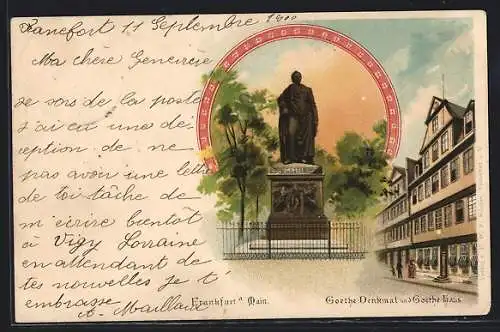 Francfort 11 Septembre 1900
Ma chère Geneviève
je sors de la poste
j'ai eu une dé
ception de ne
pas avoir une lettre
de toi tâche de
m'écrire bientôt
à Vigy Lorraine
en attendant de
tes nouvelles je t'
embrasse A. Maillaux
GOETHE
Frankfurt a/ Main.
Goethe-Denkmal und Goethe-Haus